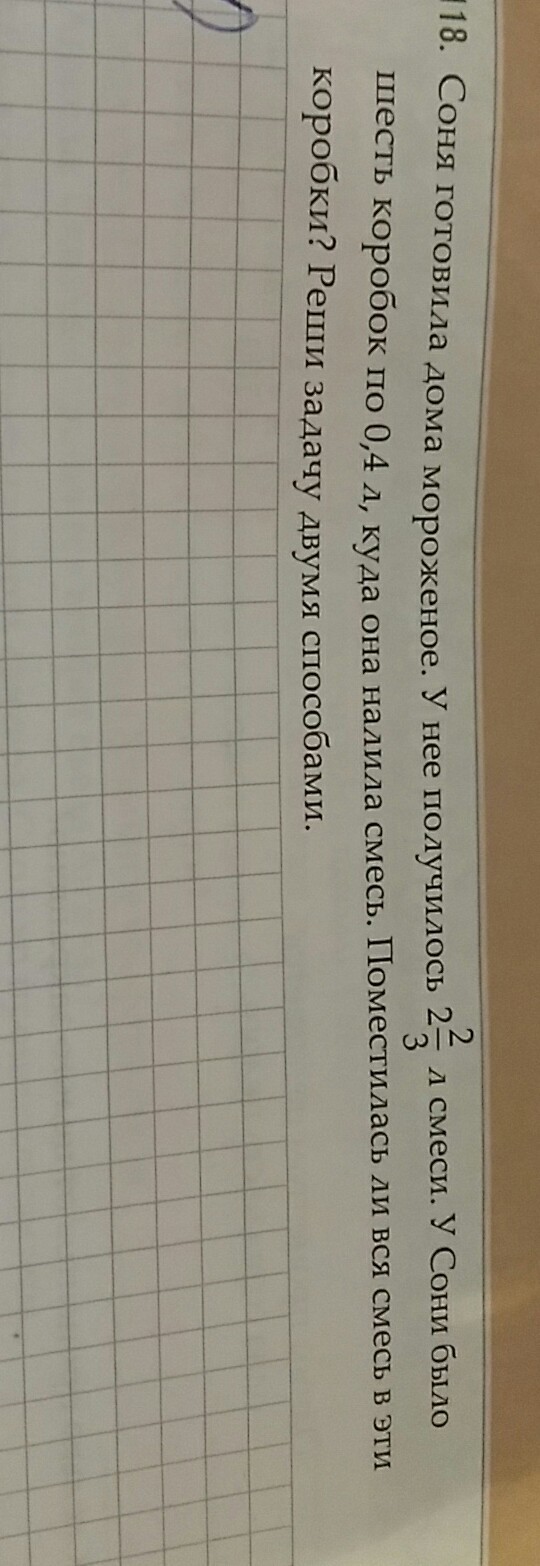 118. Соня готовила дома мороженое. У нее получилось 2 2/3 л смеси. У Сони было
шесть коробок по 0,4 л, куда она налила смесь. Поместилась ли вся смесь в эти
коробки? Реши задачу двумя способами.